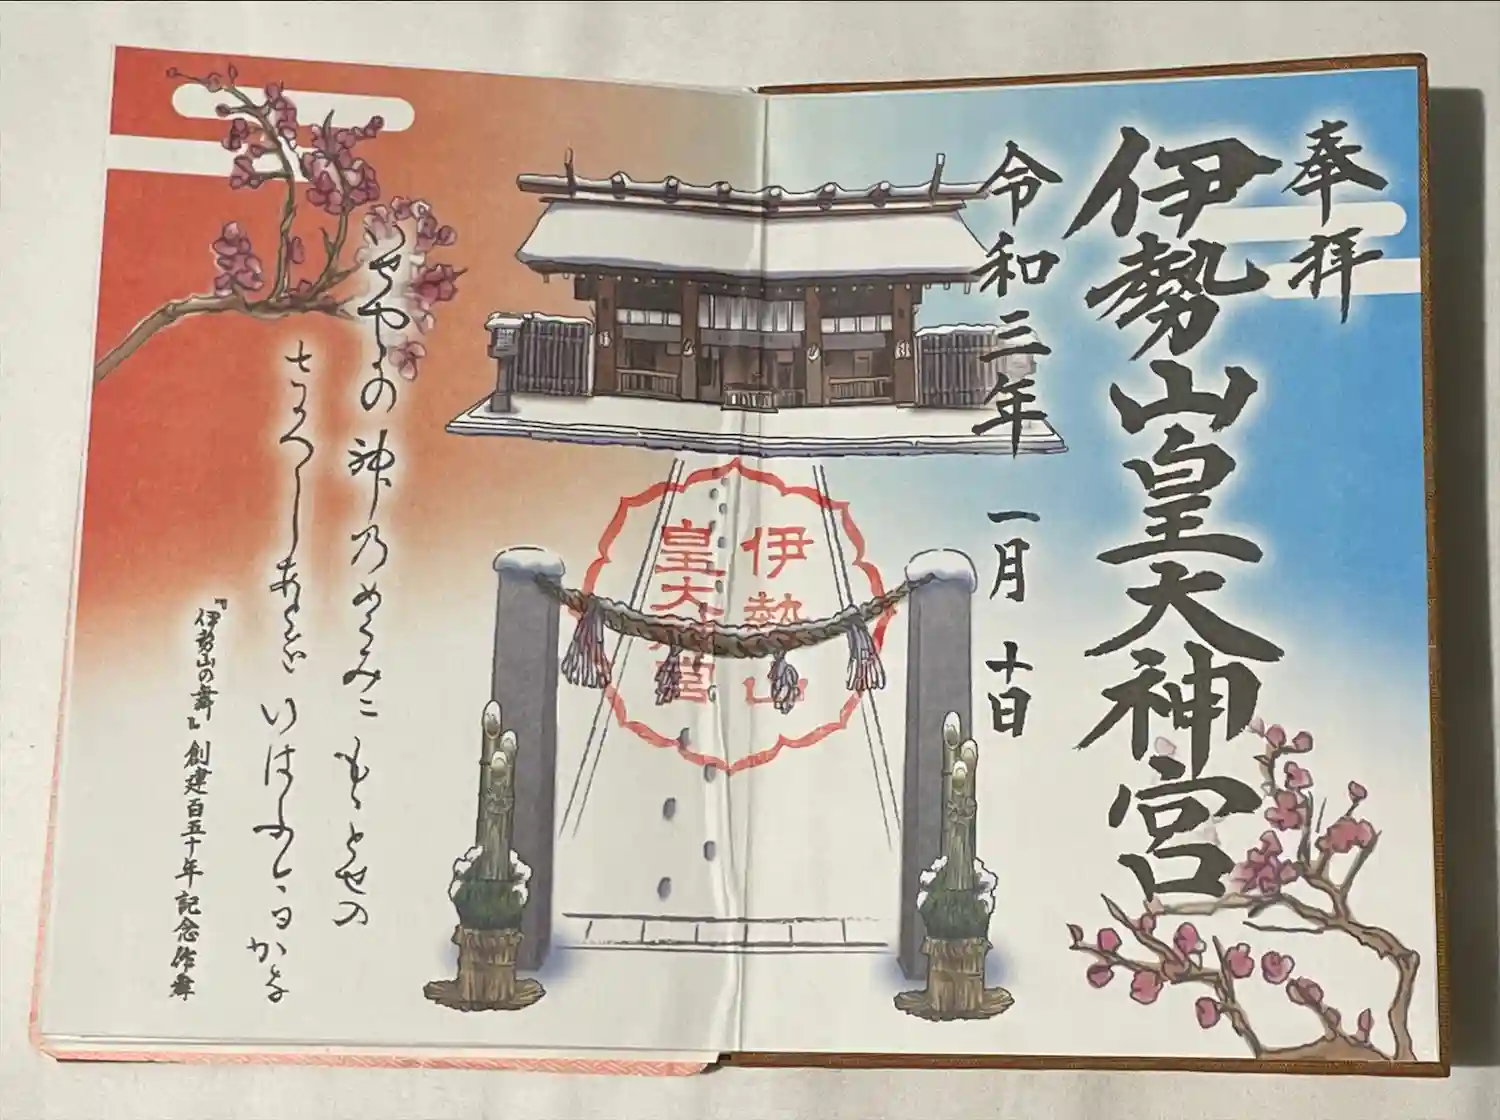 奉拝
伊勢山皇大神宮
令和三年 一月 十日
伊勢山
皇大神宮
いせやまの 神乃めくみに もゝとせの
さかへし いはふ かな
『伊勢山の舞』 創建百五十年記念作舞